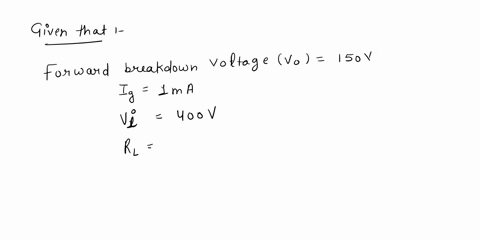 Given that :-
Forward breakdown voltage (V₀) = 150V
Ig = 1mA
Vi = 400V
RL =